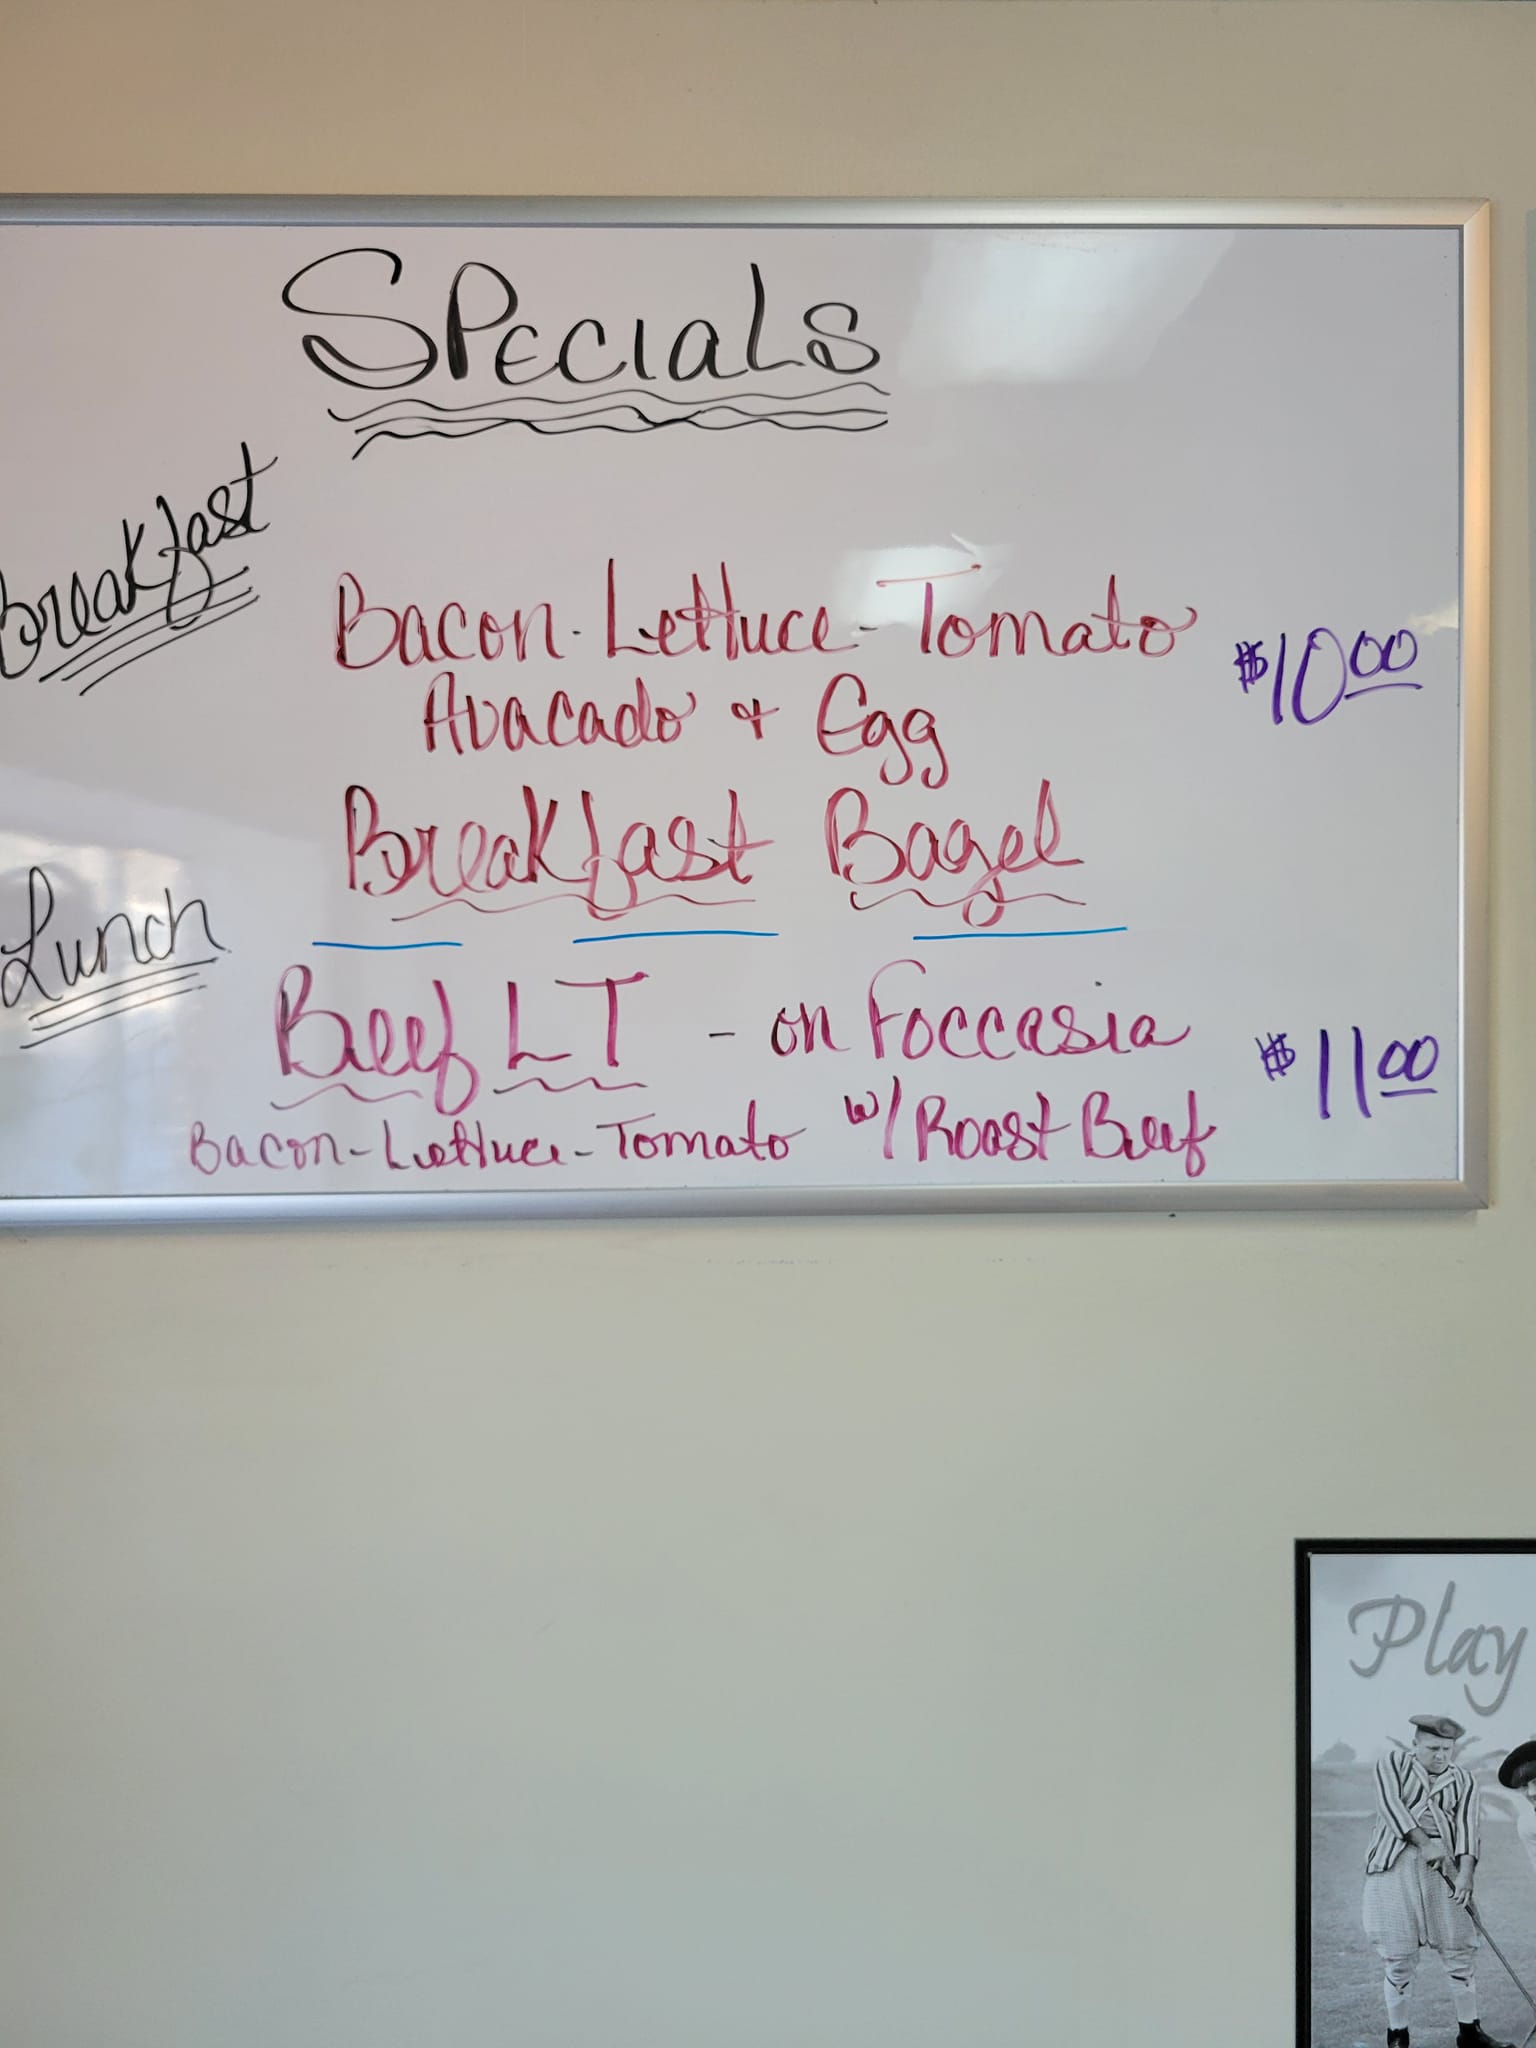 Specials
Breakfast
Bacon-Lettuce-Tomato
Avacado + Egg
$10.00
Breakfast Bagel
Lunch
Beef LT - on Foccasia
$11.00
Bacon-Lettuce-Tomato w/ Roast Beef
Play